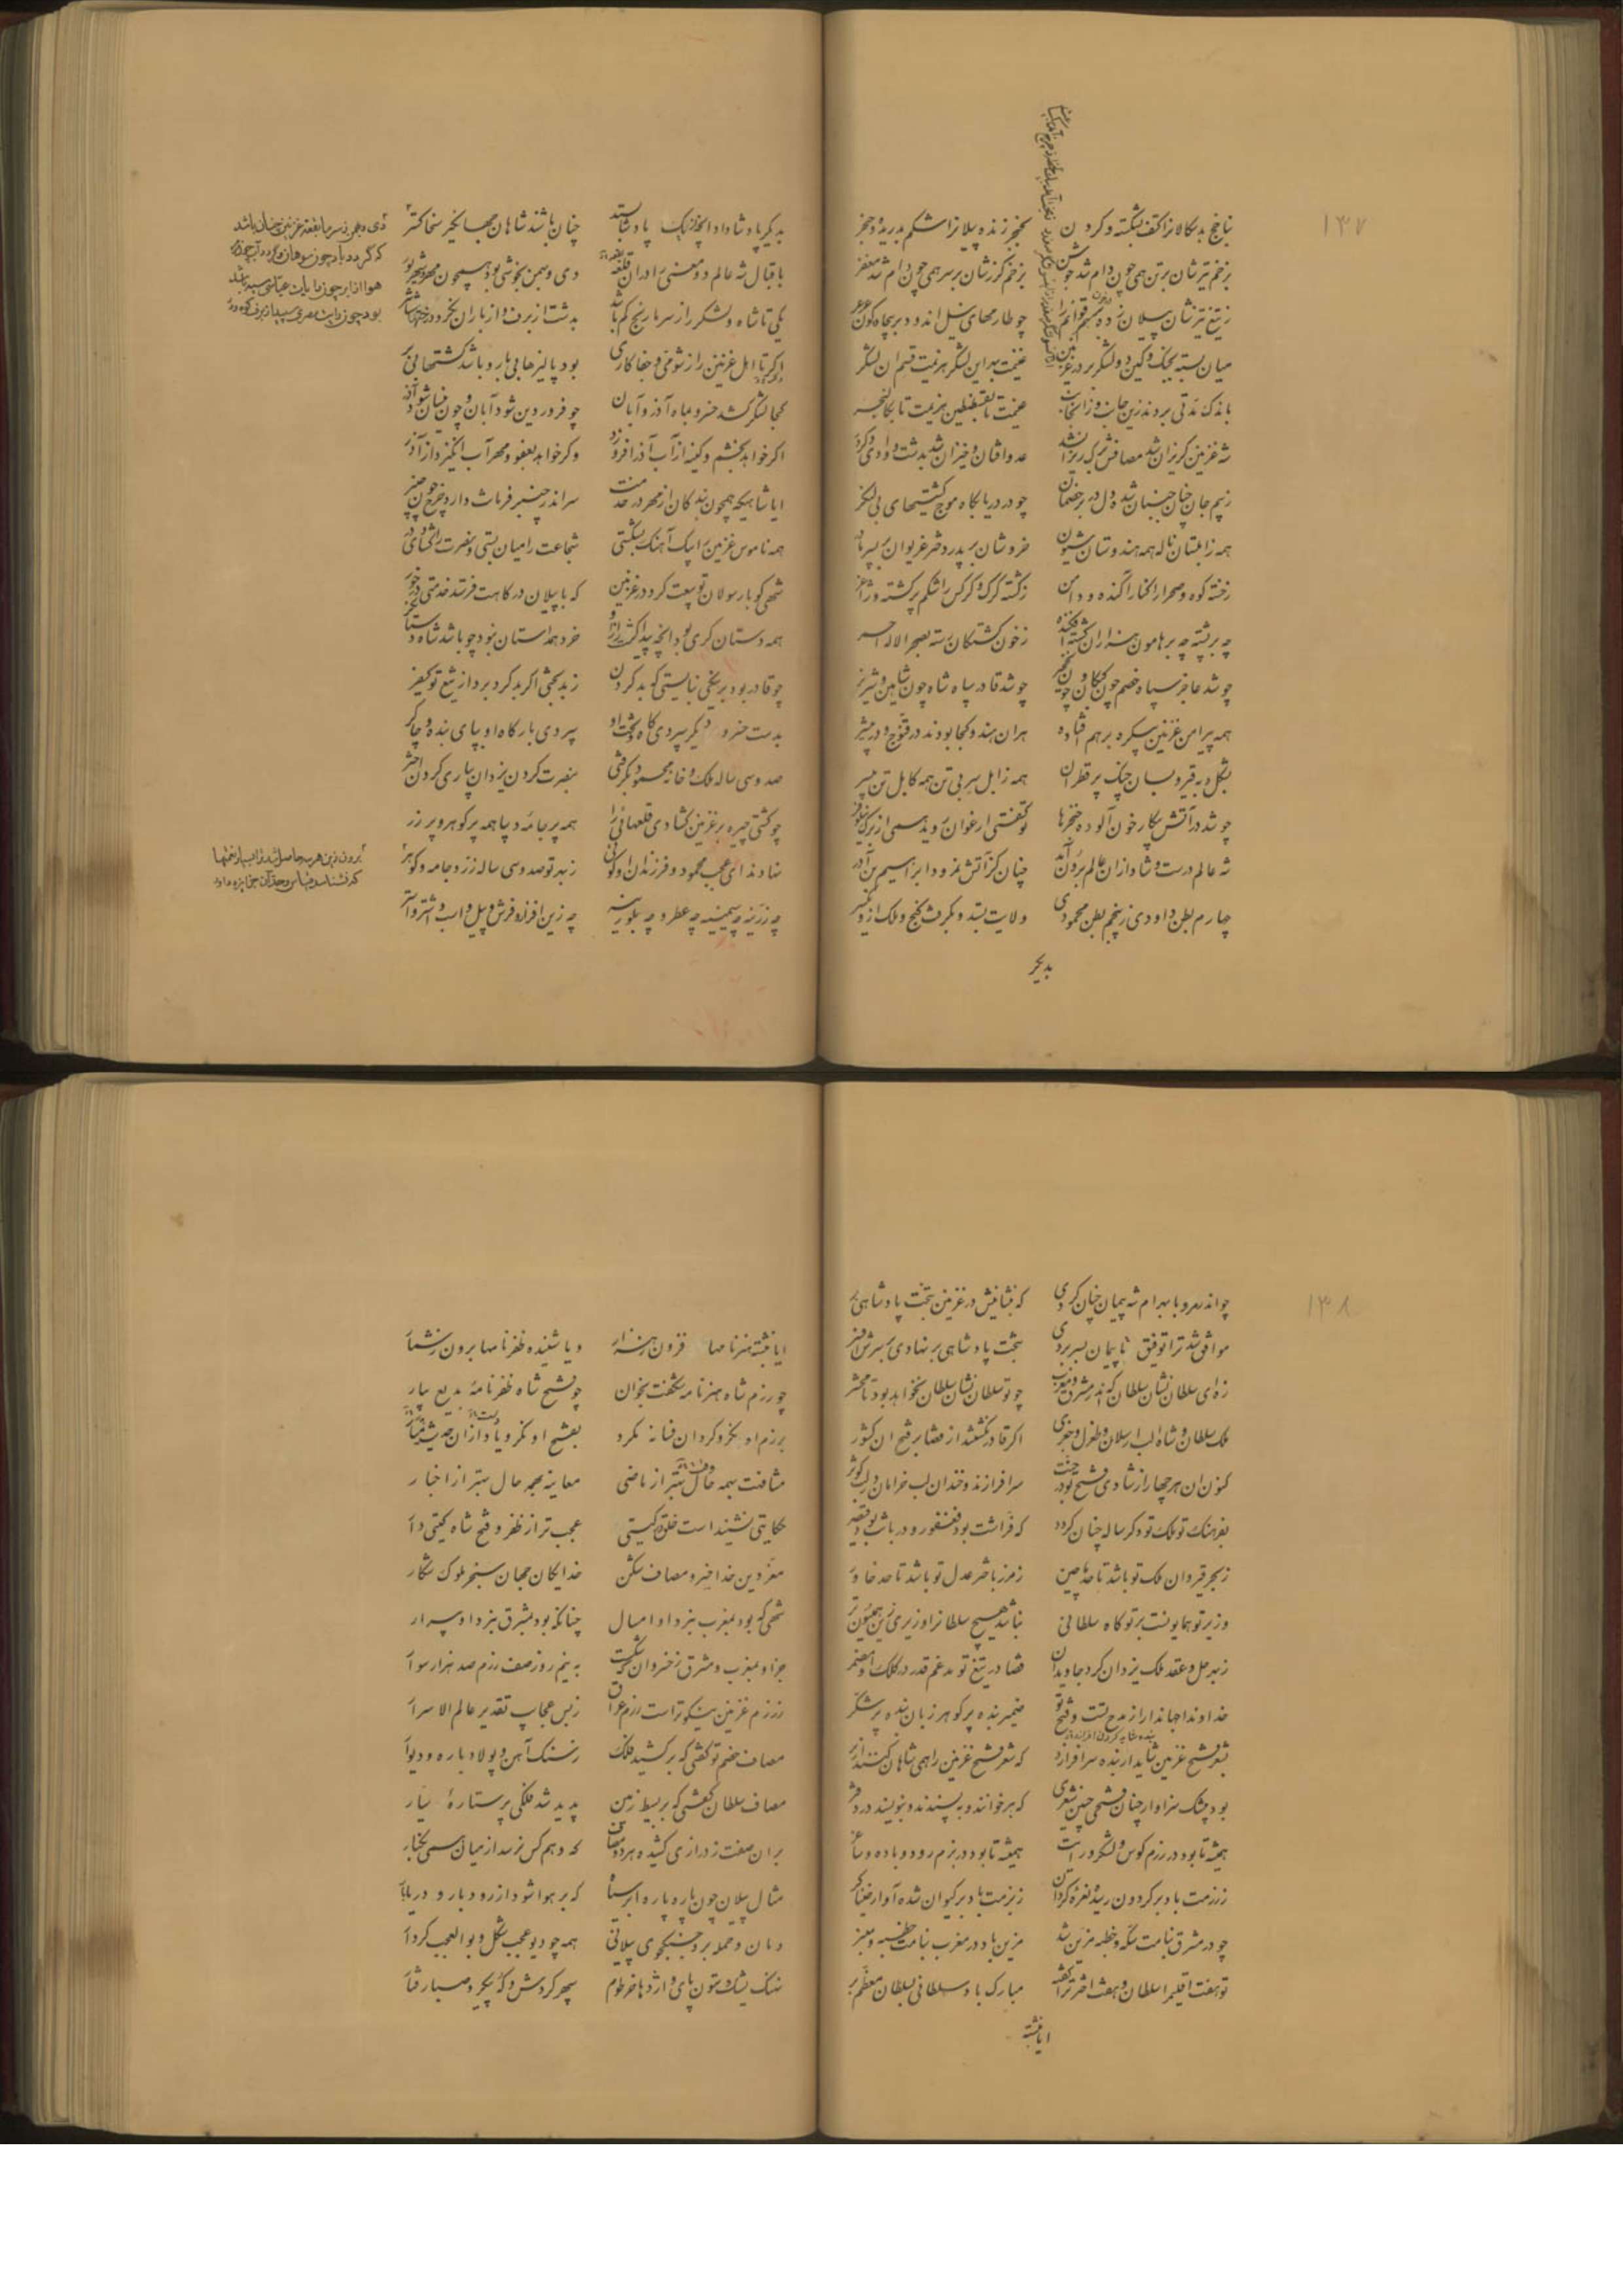 ۱۳۷
بناخج بدسکالانرا کتف بشکسته و کردن بخنجر زنده پیلانرا شکم بدریده و حنجر
بزخم تیرشان بر تن همی چون دام شد جوشن بزخم کرزشان بر سر همی چون دام شد مغفر
ز تیغ تیزشان پیلان زده
میان بسته بجنک و کین دو لشکر بر در غزنین غنیمت بهر این لشکر هزیمت قسم آن لشکر
باندک مدتی بردند زین جانب و زان جانب غنیمت تا بقسطنطین هزیمت تا بکالنجر
شه غزنین کریزان شد عدو افتان و خیزان شد بدشت و وادی و کردر
ز بیم جان چنان جنبان شده دل در بر خصمان چو در دریا بکاه موج کشتیهای بی لنکر
همه زابلستان ناله همه هندوستان شیون خروشان بر پدر دختر غریوان بر پسر مادر
ز خسته کوه و صحرا را کنار آکنده و دامن ز کشته کرک و کرکس را شکم پر کشته و ژاغر
چه بر پشته چه بر هامون هزاران کشته افکنده ز خون کشتکان رسته بصحرا لاله احمر
چو شد عاجز سپاه خصم چون کبکان و چون نخجیر چو شد قادر سپاه شاه چون شاهین و شیر نر
همه پیرامن غزنین یکسره بر هم افتاده هران هندو کجا بودند در قنوج و در میثر
بشکل دبه قیر و بسان چنک پر قطران همه زابل سر بی تن همه کابل تن بی سر
چو شد در آتش پیکار خون آلوده خنجرها تو کفتی ارغوان روید همی از برک نیلوفر
شه عالم درست و شادازان عالم برون آمد چنان کز آتش نمرود ابراهیم بن آزر
چهارم بطن داودی ز پنجم بطن محمودی ولایت بستد و بکرفت کنج و ملک ازو یکسر
بدیکر
بدیکر پادشا داد آنچه از یک پادشا بستد چنان باشند شاهان جهان بخیر سخا کستر
باقبال شه عالم دو معنی را دران قلعه دی و بهمن بخوشی بود همچون مهر و شهریور
یکی تا شاه و لشکر را ز سرما رنج کم باشد بدشت از برف و از باران نکردد رختهاشان تر
دکر تا اهل غزنین را ز شومی و جفاکاری بود پالیزها بی بار و باشد کشتها بی بر
کجا لشکر کشد خسرو بماه آذر و آبان چو فروردین شود آبان و چون نیسان شود آذر
اکر خواهد بخشم و کینه از آب آذر افروزد وکر خواهد بعفو و مهر آب انکیزد از آذر
ایا شاهی که همچون بندکان از مهر در خدمت سر اندر چنبر فرمانت دارد چرخ چون چنبر
همه ناموس غزنین را بیک آهنک بشکستی شجاعت را میان بستی و نصرت را کشادی در
شهی کو با رسولان تو بیعت کرد در غزنین که با پیلان درکاهت فرستد خدمتی درخور
همه دستان کری بود آنچه پیدا کشت راز او خرد همداستان نبود چو باشد شاه دستانکر
چو قادر بود بر نیکی نبایستی که بد کردن ز بدبختی اکر بد کرد برد از تیغ تو کیفر
بدست خسرو دیکر سپردی کاه و تخت او سپردی بارکاه او بپای بنده و چاکر
صد و سی ساله ملک و خانه محمود بکرفتی بنصرت کردن یزدان بیاری کردن اختر
چو کشتی چیره بر غزنین کشادی قلعهائی را همه پر جامه دیبا همه پر کوهر و پر زر
نهادند ای عجب محمود و فرزندان او کوئی ز بهر تو صد و سی ساله زر و جامه و کوهر
چه زرینه چه سیمینه چه عطر و چه بلورینه چه زین افزار و فرش و پیل و اسب و اشتر و استر
دی و بهمن ز سرما بقعه غزنین چنان باشد
که کردد باد چون سوهان و کردد آب چون
هوا از ابر چون رایات عباسی سیه باشد
بود چون رایت مصری سپید از برف کوه و در
برون زین هر چه حاصل شد ترا بسیار نعمتها
که نشناسد قیاس و حد آن جز ایزد داور
۱۳۸
چو اندر مرو با بهرام شه پیمان چنان کردی که بنشانیش در غزنین بتخت پادشاهی بر
موافق شد ترا توفیق تا پیمان بسر بردی بتخت پادشاهی بر نهادی بر سرش افسر
زهی سلطان نشان سلطان که اندر مشرق و مغرب چو تو سلطان نشان سلطان نخواهد بود تا محشر
ملک سلطان و شاه الب ارسلان و طغرل و جغری اکر قادر نکشتند از قضا بر فتح آن کشور
کنون آن هر چهار از شادی فتح تو در جنت سرافرازند و خندان لب خرامان در لب کوثر
بفرهنک تو ملک تو دکر ساله چنان کردد که فراشت بود فغفور و دربانت بود قیصر
ز بحر قیروان ملک تو باشد تا حد ماچین ز مرز باختر عدل تو باشد تا حد خاور
وزیر تو همایونست بر توکاه سلطانی نباشد هیچ سلطانرا وزیری زین همایون تر
ز بهر حل و عقد ملک یزدان کرد جاویدان قضا در تیغ تو مدغم قدر در کلک او مضمر
خداوندا جهاندارا ز مدح تست و فتح تو ضمیر بنده پر کوهر زبان بنده پر شکر
بشعر فتح غزنین شاید ار بنده سر افرازد که شعر فتح غزنین را همی شاهان کنند از بر
بود بیشک سزاوار چنان فتحی چنین شعری که برخوانند و بپسندند و بنویسند در دفتر
همیشه تا بود در رزم کوس و لشکر و رایت همیشه تا بود در بزم رود و باده و ساغر
ز رزمت باد بر کردون رسیده نعره کردان ز بزمت باد بر کیوان شده آواز خنیاکر
چو در مشرق بنامت سکه و خطبه مزین شد مزین باد در مغرب بنامت خطبه و منبر
تو هفت اقلیم را سلطان و هفت اختر ترا کفته مبارک باد سلطانی بسلطان معظم بر
ایا نبشته
ایا نبشته هنرنامها فزون ز هزار و یا شنیده ظفرنامها برون ز شمار
چو رزم شاه هنرنامه شکفت بخوان چو فتح شاه ظفرنامه بدیع بیار
برزم او بکرو کردان فسانه مکرد بفتح او نکر و یاد ازان حدیث میار
مشافهت بهمه حال بهتر از ماضی معاینه بهمه حال بهتر از اخبار
حکایتی نشنیدست خلق در کیتی عجب تر از ظفر و فتح شاه کیتی دار
معز دین خدا خسرو مصاف شکن خدایکان جهان سنجر ملوک شکار
شهی که بود بمغرب نبرد او امسال چنانکه بود بمشرق نبرد او پیرار
جز او بمغرب و مشرق ز خسروان که شکست به نیم روز صف رزم صد هزار سوار
ز رزم غزنین نیکوترست رزم عراق ز بس عجایب تقدیر عالم الاسرار
مصاف خصم تو کفتی که بر کشید فلک ز سنک آهن و پولاد باره و دیوار
مصاف سلطان کفتی که بر بسیط زمین پدید شد فلکی پر ستاره سیار
بران صفت ز درازی کشیده هر دو مصاف که وهم کس نرسد از میان همی بکنار
مثال پیلان چون پاره پاره ابر سیاه که بر هوا شود از رود بار و دریا بار
دمان و حمله بر و جنکجوی پیلانی همه چو دیو عجب شکل و بوالعجب کردار
نهنک یشک و ستون پای و اژدها خرطوم سپهر کردش و که پیکر و صبا رفتار